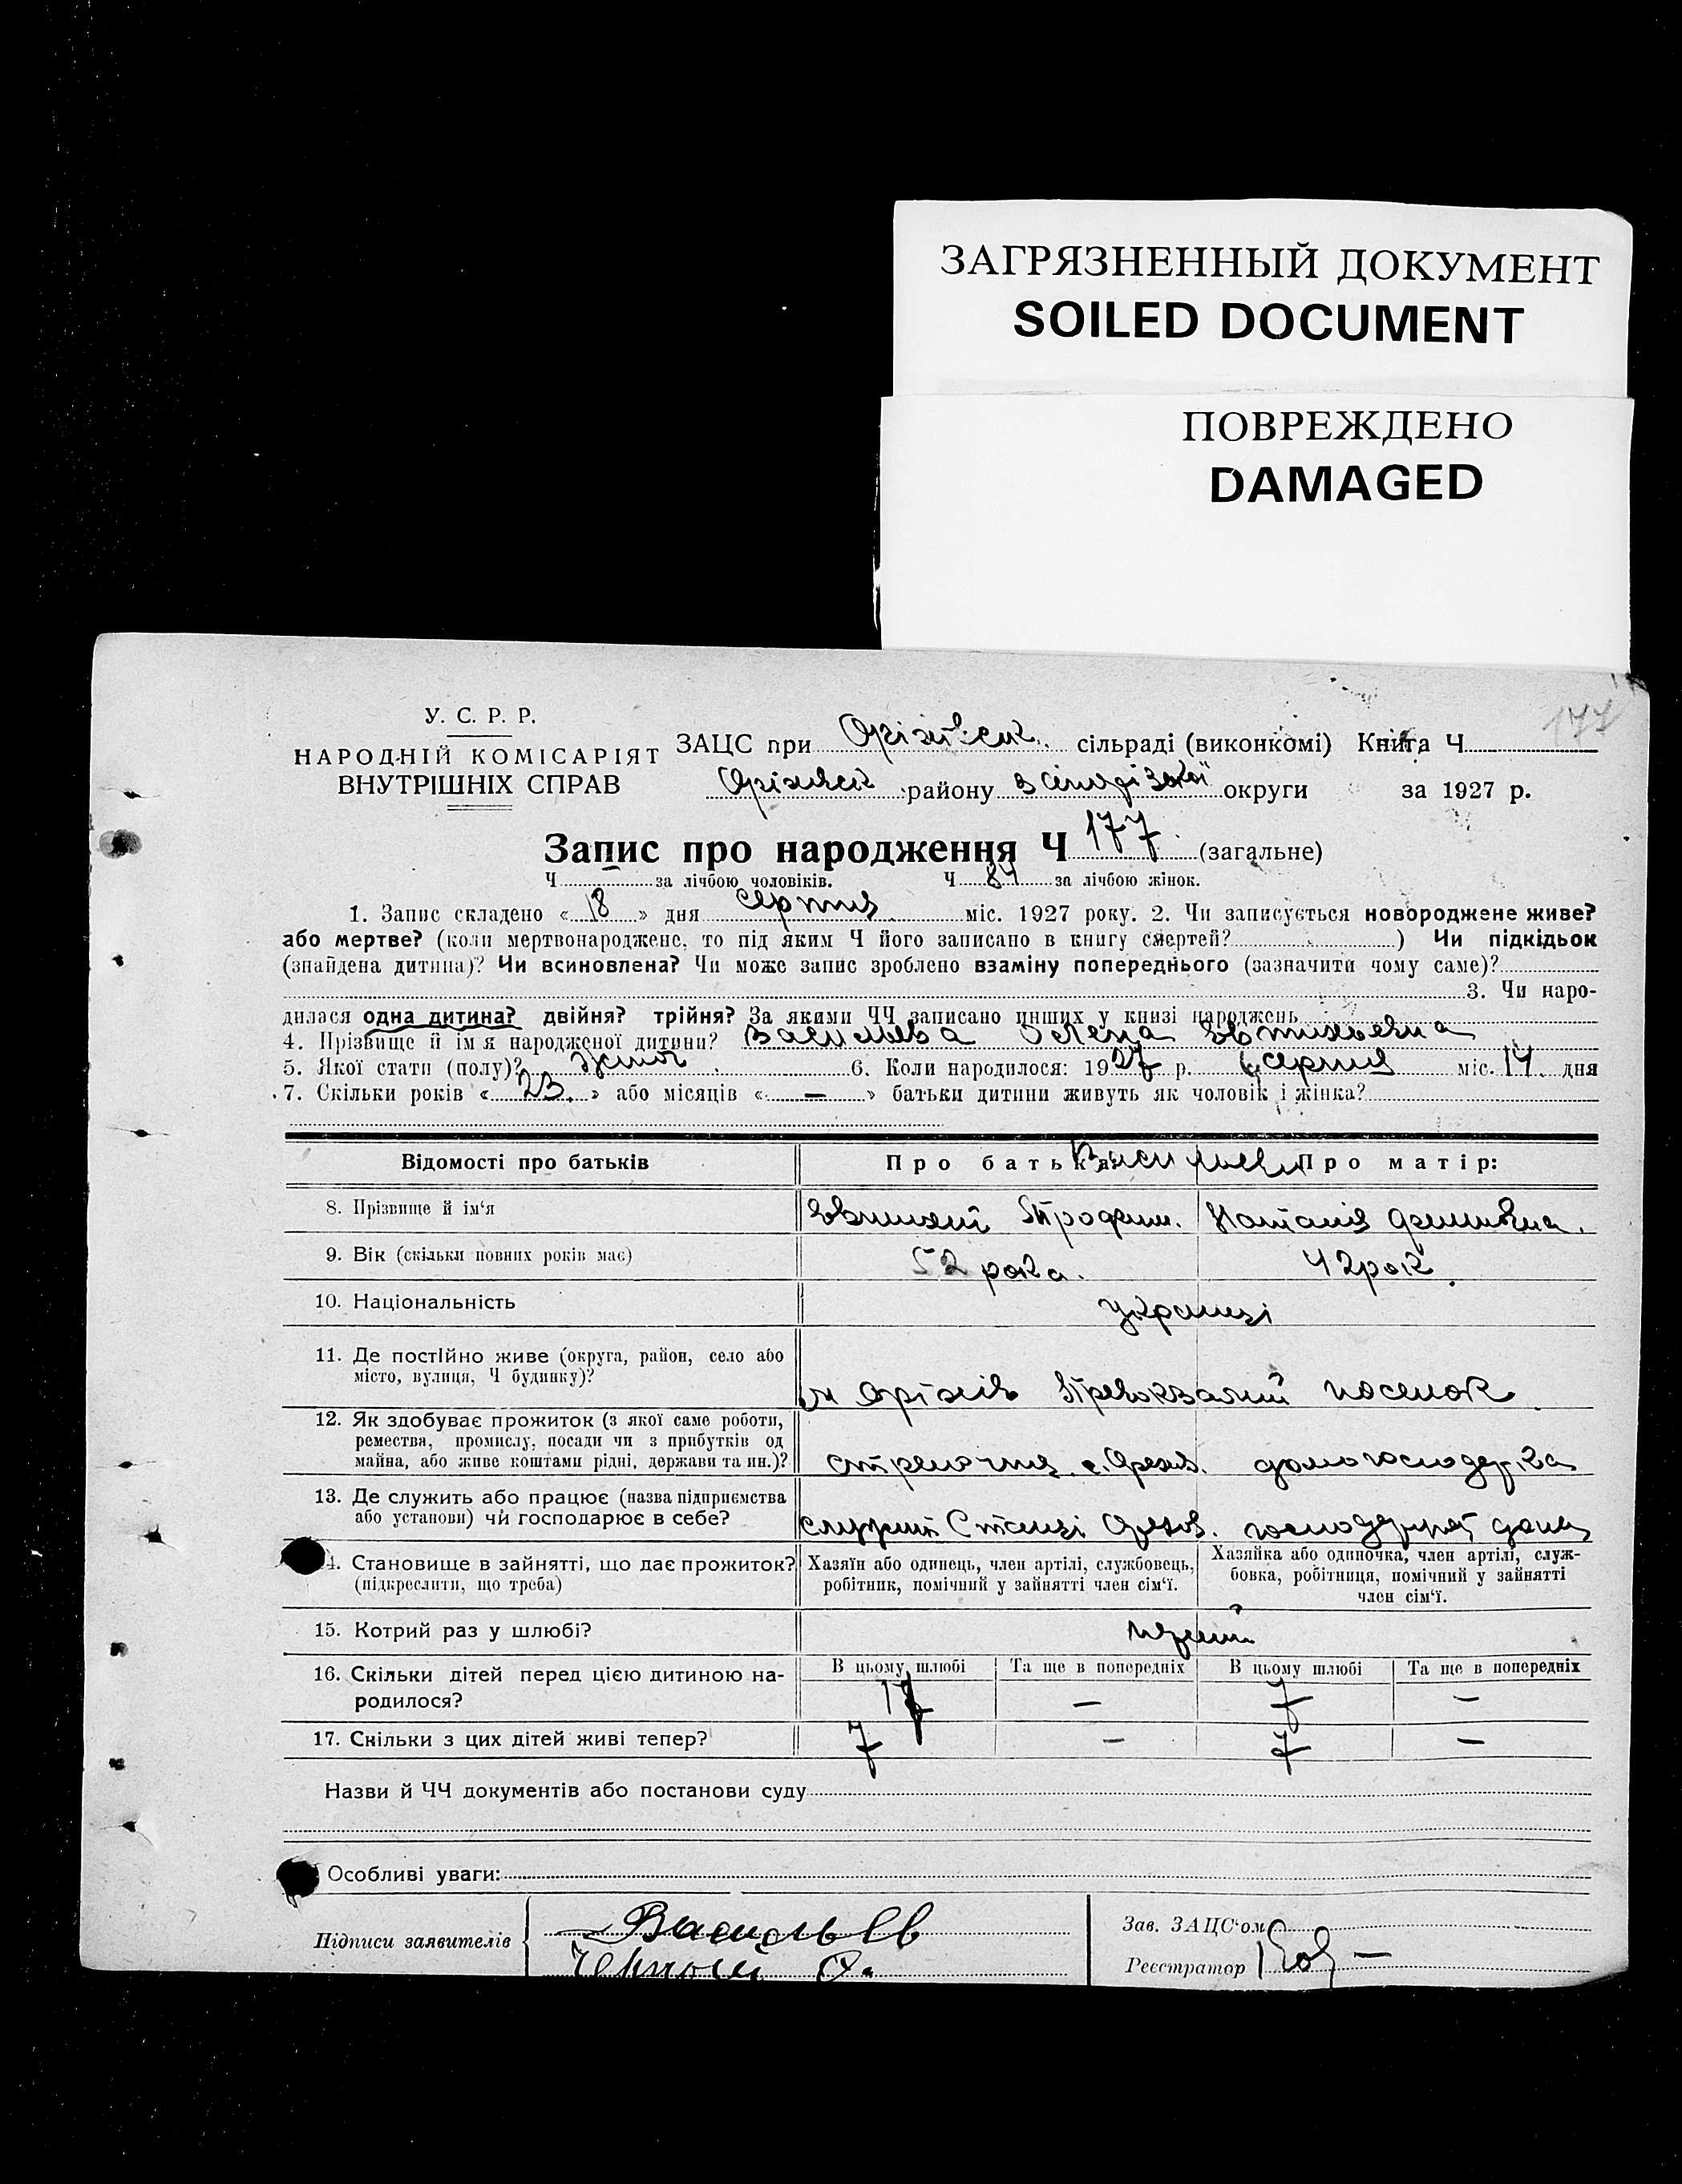 ЗАГРЯЗНЕННЫЙ ДОКУМЕНТ
SOILED DOCUMENT
ПОВРЕЖДЕНО
DAMAGED
177
У. С. Р. Р.
НАРОДНІЙ КОМІСАРІЯТ
ВНУТРІШНІХ СПРАВ
ЗАЦС при сільраді (виконкомі) Книга Ч
району округи за 1927 р.
Запис про народження Ч 177 (загальне)
Ч за лічбою чоловіків. Ч 84 за лічбою жінок.
1. Запис складено « 18 » дня серпня міс. 1927 року. 2. Чи записується новороджене живе?
або мертве? (коли мертвонароджене, то під яким Ч його записано в книгу смертей? ) Чи підкідьок
(знайдена дитина)? Чи всиновлена? Чи може запис зроблено взаміну попереднього (зазначити чому саме)?
3. Чи наро-
дилася одна дитина? двійня? трійня? За якими ЧЧ записано инших у книзі народжень
4. Прізвище й ім'я народженої дитини? Василєва Олена Євтихьевна
5. Якої стати (полу)? жіноч 6. Коли народилося: 1927 р. серпня міс. 14 дня
7. Скільки років « 23 » або місяців « — » батьки дитини живуть як чоловік і жінка?
Відомості про батьків Про батька: Про матір:
8. Прізвище й ім'я Наталія
9. Вік (скільки повних років має) 52 рока. 42 рок.
10. Національність українці
11. Де постійно живе (округа, район, село або
місто, вулиця, Ч будинку)?
м Оріхів посьолок
12. Як здобуває прожиток (з якої саме роботи,
ремества, промислу, посади чи з прибутків од
майна, або живе коштами рідні, держави та ин.)?
13. Де служить або працює (назва підприємства
або установи) чи господарює в себе?
14. Становище в зайнятті, що дає прожиток?
(підкреслити, що треба)
Хазяїн або одинець, член артілі, службовець,
робітник, помічний у зайнятті член сім'ї.
Хазяйка або одиночка, член артілі, служ-
бовка, робітниця, помічний у зайнятті
член сім'ї.
15. Котрий раз у шлюбі? перший
16. Скільки дітей перед цією дитиною на-
родилося?
В цьому шлюбі Та ще в попередніх В цьому шлюбі Та ще в попередніх
— 7 —
17. Скільки з цих дітей живі тепер? 7 — 7 —
Назви й ЧЧ документів або постанови суду
Особливі уваги:
Підписи заявителів Васильев
Зав. ЗАЦС'ом
Реєстратор